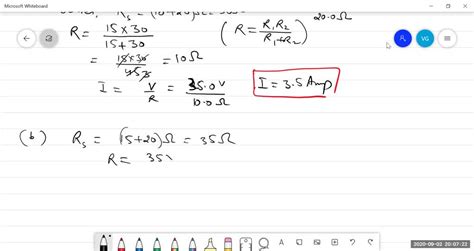 Microsoft Whiteboard
Rs = (10+20)Ω = 30Ω
20.0Ω
R = 15 × 30 / 15 + 30
(R = R₁R₂ / R₁+R₂)
= 15×30 / 45 = 10Ω
I = V / R = 35.0 V / 10.0 Ω
I = 3.5 Amp
(b) Rs = (15+20)Ω = 35Ω
R = 35
VG
2020-09-02 20:07:22